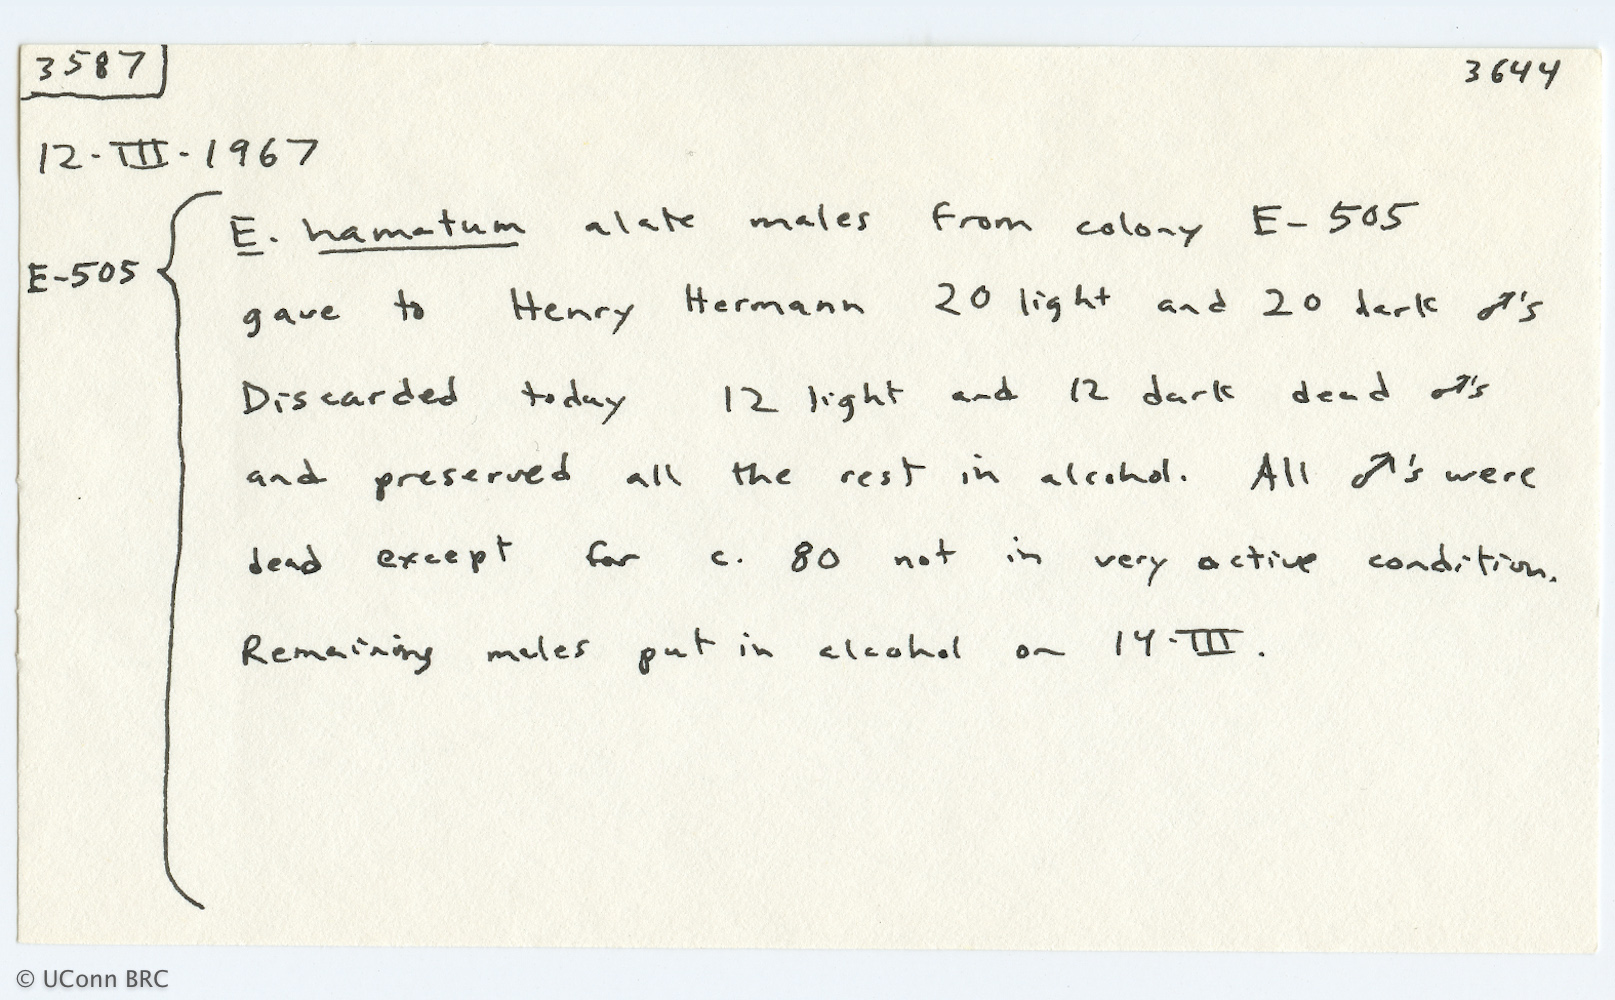 3587
3644
12-III-1967
E-505
E. hamatum alate males from colony E-505
gave to Henry Hermann 20 light and 20 dark ♂'s
Discarded today 12 light and 12 dark dead ♂'s
and preserved all the rest in alcohol. All ♂'s were
dead except for c. 80 not in very active condition.
Remaining males put in alcohol on 14-III.
© UConn BRC